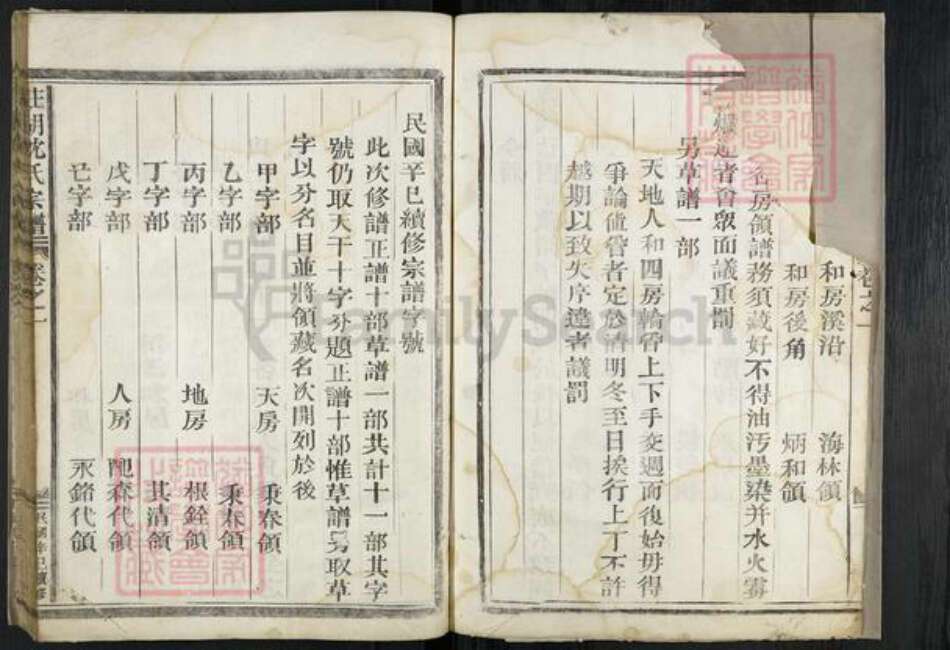 卷之一
和房溪沿 海林領
和房後角 炳和領
各房領譜務須藏好不得油汚墨染并水火霉
違者會眾面議重罰
另草譜一部
天地人和四房輪管上下手交週而復始毋得
爭論值管者定於清明冬至日挨行上丁不許
越期以致失序違者議罰
民國辛巳續修宗譜字號
此次修譜正譜十部草譜一部共計十一部其字
號仍取天干十字分題正譜十部惟草譜另取草
字以分名目並將領藏名次開列於後
甲字部 天房 秉春領
乙字部 秉春領
丙字部 地房 根銓領
丁字部 其清領
戊字部 人房 森代領
己字部 永銘代領
沈氏宗譜 卷之一
民國辛巳續修
FamilySearch